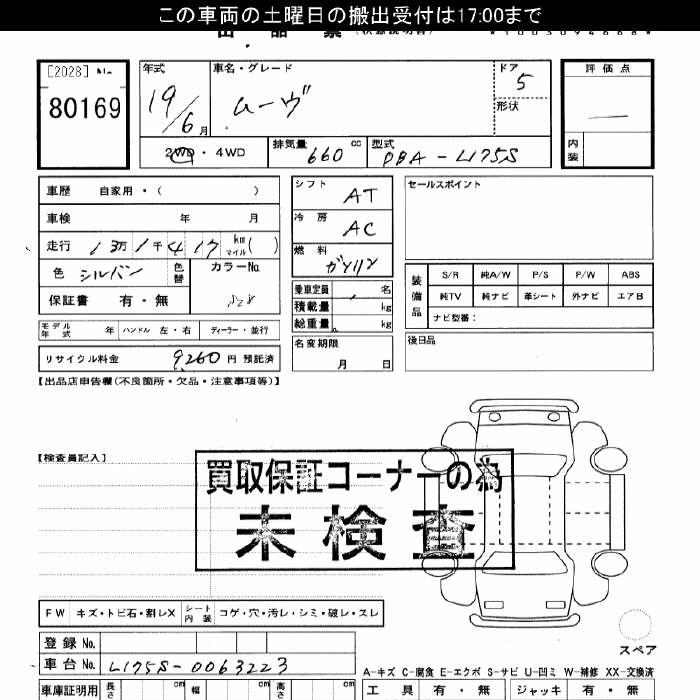 この車両の土曜日の搬出受付は17:00まで
[2028] No.
80169
年式 車名・グレード ドア 評価点
19/6月 ムーヴ 5 —
形状
2WD・4WD 排気量 660 cc 型式 DBA-L175S 内装
車歴 自家用・( ) シフト AT セールスポイント
車検 年 月 冷房 AC
走行 13万1千417 km マイル ( ) 燃料 ガソリン
色 シルバー 色替 カラーNo. S28 装備品 S/R 純A/W P/S P/W ABS
保証書 有・無 乗車定員 名 純TV 純ナビ 革シート 外ナビ エアB
積載量 kg ナビ型番:
モデル年式 年 ハンドル 左・右 ディーラー・並行 総重量 kg
リサイクル料金 9,260 円 預託済 名変期限 月 日 後日品
【出品店申告欄(不良箇所・欠品・注意事項等)】
【検査員記入】
買取保証コーナーの為
未検査
FW キズ・トビ石・割レX シート内装 コゲ・穴・汚レ・シミ・破レ・スレ
登録No. スペア
車台No. L175S-0063223
A-キズ C-腐食 E-エクボ S-サビ U-凹ミ W-補修 XX-交換済
車庫証明用 長さ cm 幅 cm 高さ cm 工具 有・無 ジャッキ 有・無